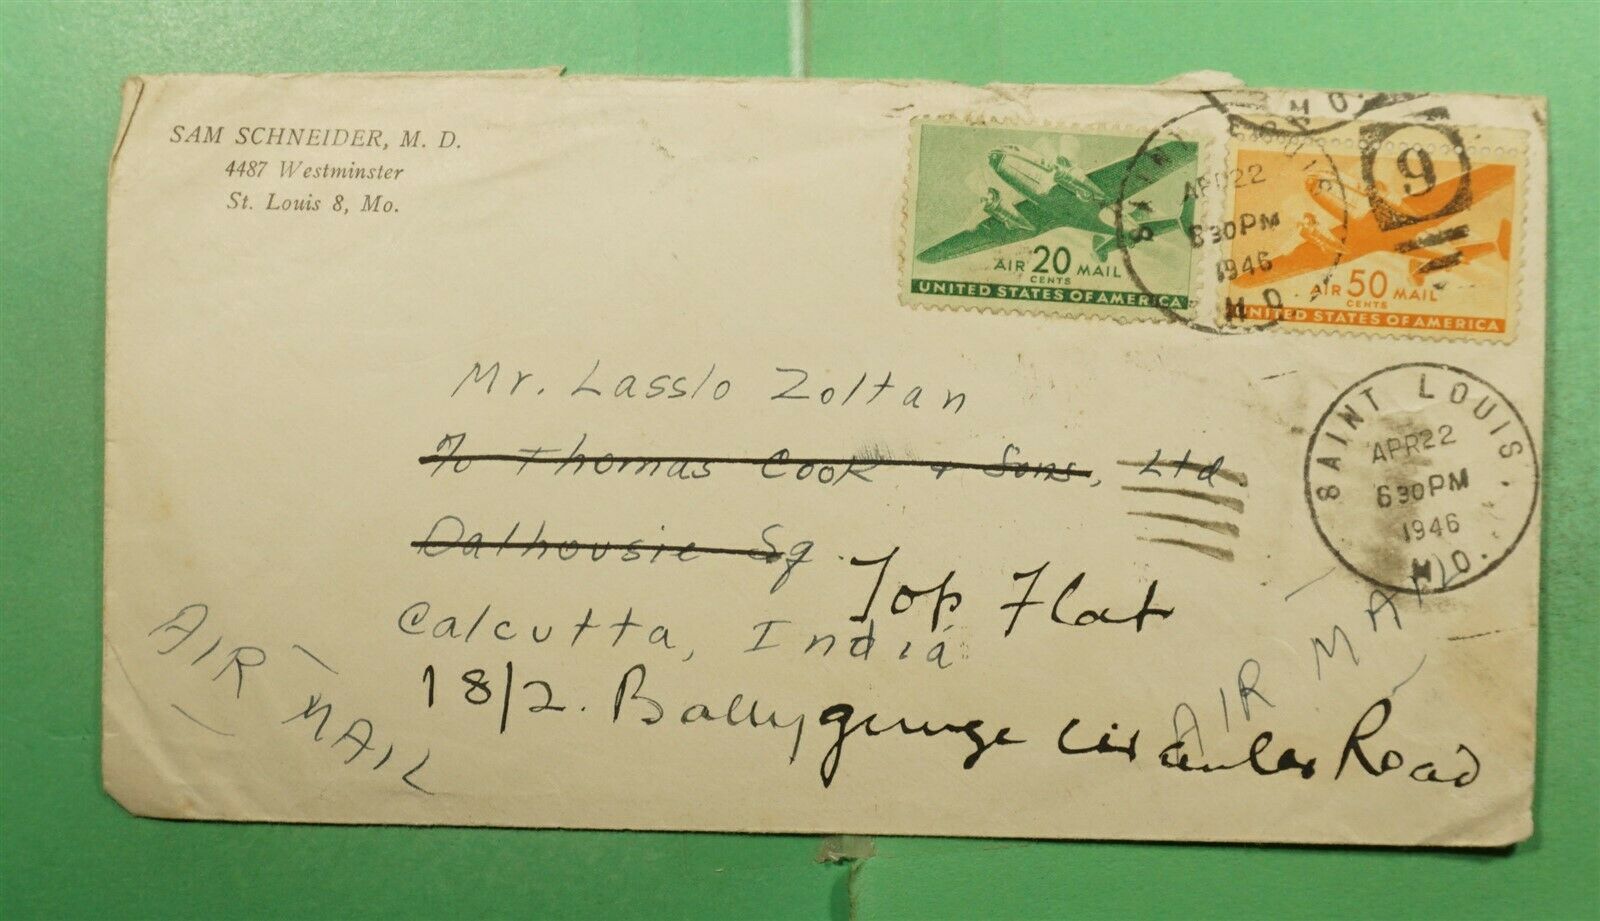 SAM SCHNEIDER, M. D.
4487 Westminster
St. Louis 8, Mo.
AIR 20 MAIL
CENTS
UNITED STATES OF AMERICA
AIR 50 MAIL
CENTS
UNITED STATES OF AMERICA
M O.
9
SAINT LOUIS
APR 22
630PM
1946
MO.
SAINT LOUIS,
APR 22
630PM
1946
MO.
Mr. Lasslo Zoltan
℅ Thomas Cook & Sons, Ltd.
Dalhousie Sq.
Top Flat
Calcutta, India
18/2. Ballygunge Circular Road
AIR MAIL
AIR MAIL